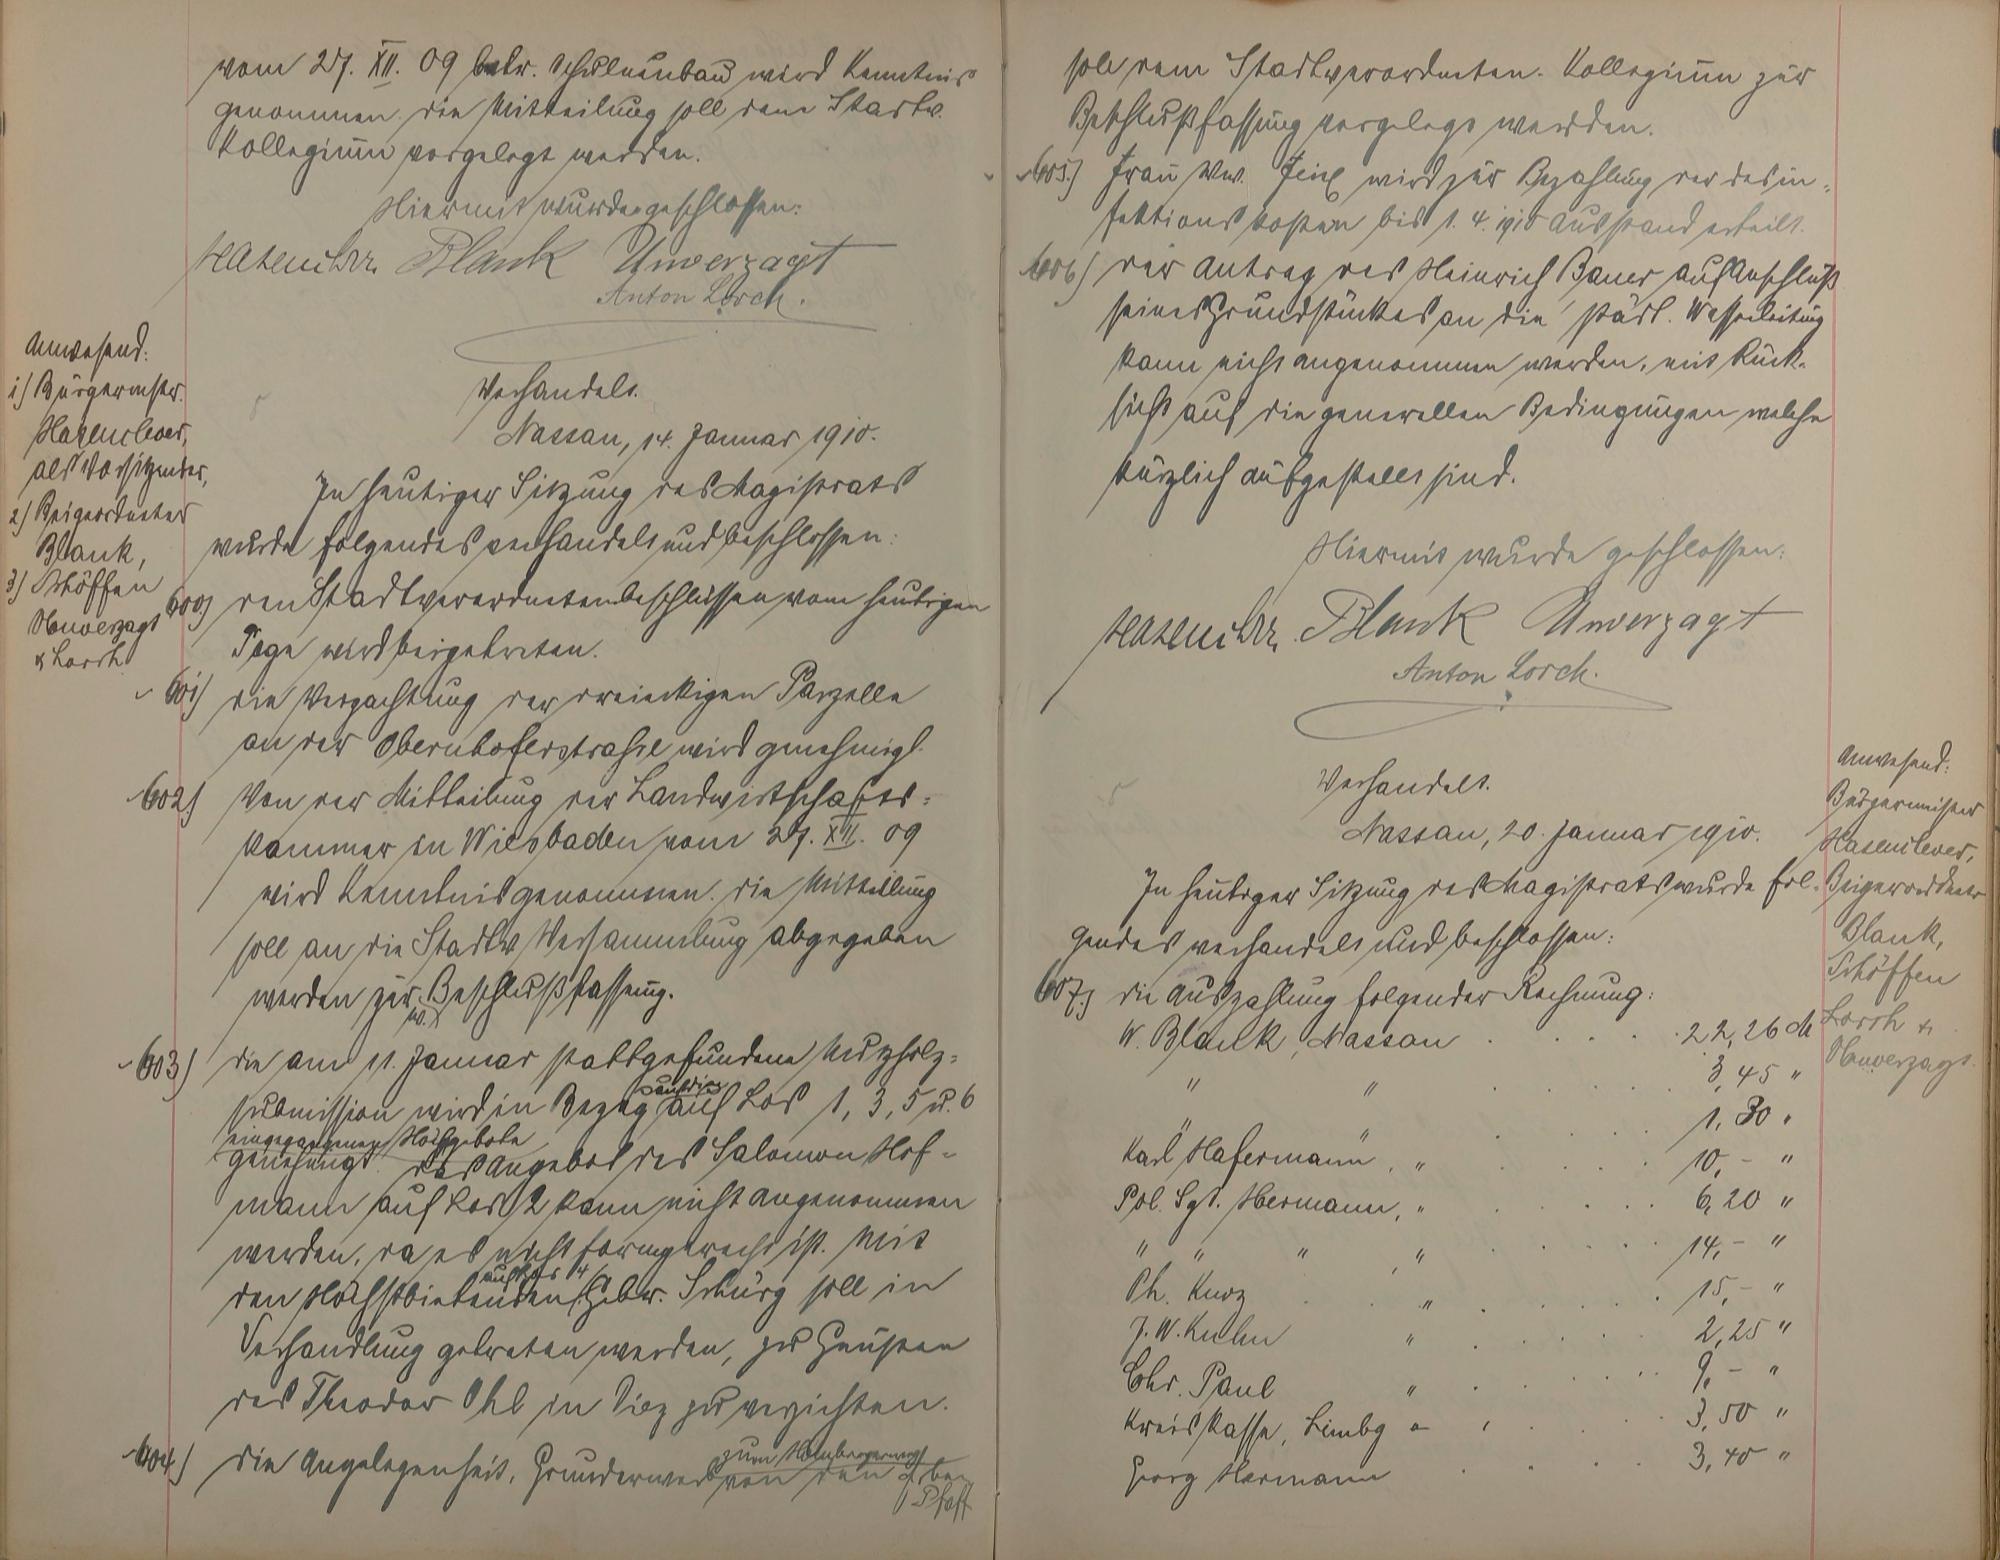 vom 27. XII. 09 betr. Schulneubau wird Kenntnis
genommen. die Mitteilung soll dem Stadtv.
Kollegium vorgelegt werden.
Hiermit wurde geschlossen:
Hasenclever Blank Unverzagt
Anton Lorch.
Anwesend:
1) Bürgermstr.
Hasenclever,
als Vorsitzender,
2) Beigeordneter
Blank,
3) Schöffen
Unverzagt
& Lorch
Verhandelt.
Nassau, 14. Januar 1910.
In heutiger Sitzung des Magistrats
wurde folgendes verhandelt und beschlossen:
600) den Stadtverordnetenbeschlüssen vom heutigen
Tage wird beigetreten.
601) die Verpachtung der dreieckigen Parzelle
an der Obernhoferstrahse wird genehmigt.
602) Von der Mitteilung der Landwirtschafts-
kammer in Wiesbaden vom 27. XII. 09
wird Kenntnis genommen. die Mitteilung
soll an die Stadtv. Versammlung abgegeben
werden zur Beschlußfassung.
603) die am 11. Januar stattgefundene Nutzholz-
submission wird in Bezug auf die auf Los 1, 3, 5 u. 6
eingegangenen Höchgebote
genehmigt. das Angebot des Salomon Hof-
mann auf Los 2 kann nicht angenommen
werden, da es nicht formgerecht ist. Mit
den Höchstbietenden auf Los 4 Gebr. Schürg soll in
Verhandlung getreten werden, zu Gunsten
des Theodor Ohl in Diez zu verzichten.
604) die Angelegenheit, Grunderwerb zum Hombergerweg von den Erben
Pfaff
soll dem Stadtverordneten-Kollegium zur
Beschlußfassung vorgelegt werden.
605.) Frau Ww. wird zur Bezahlung der desin-
fektionskosten bis 1. 4. 1910 Ausstand erteilt.
606) der Antrag des Heinrich Bauer auf Anschluß
seines Grundstückes an die städt. Wasserleitung
kann nicht angenommen werden, mit Rück-
sicht auf die generellen Bedingungen welche
kürzlich aufgestellt sind.
Hiermit wurde geschlossen:
Hasenclever Blank Unverzagt
Anton Lorch.
Verhandelt.
Nassau, 20. Januar 1910.
Anwesend:
Bürgermeister
Hasenclever,
Beigeordneter
Blank,
Schöffen
Lorch &
Unverzagt.
In heutiger Sitzung des Magistrats wurde fol-
gendes verhandelt und beschlossen:
607.) die Auszahlung folgender Rechnung:
W. Blank, Nassau . . . . 22,26 M
" " . . . . 3,45 "
" " . . . . 1,30 "
Karl Hafermann, " . . . . 10,- "
Pol. Sgt. Hermann, " . . . . 6,20 "
" " " " . . . . 14,- "
Ph. Kurz " . . . . 15,- "
J. W. Kuhn " . . . . 2,25 "
Chr. Paul " . . . . 9,- "
Kreiskasse, Limbg " . . . . 3,50 "
Georg Hermann . . . . 3,40 "